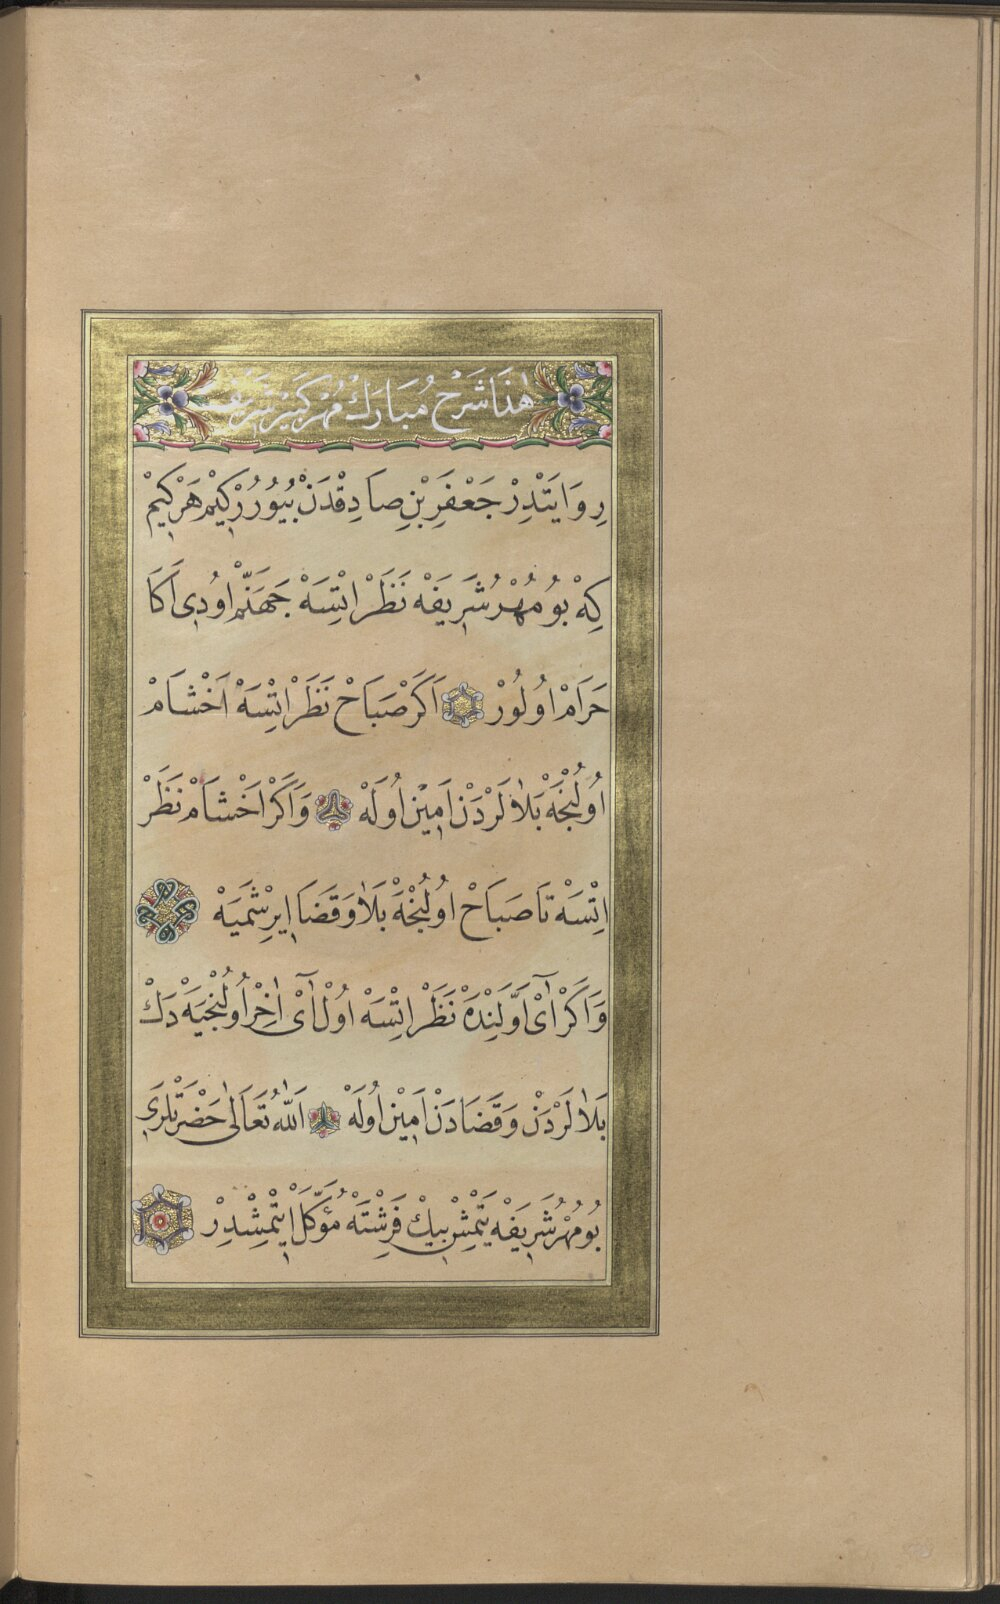 هٰذَا شَرْحُ مُبَارَكْ مُهْرِ كَبِيرْ شَرِيفْ
رِوَايَتْدِرْ جَعْفَرِ بْنِ صَادِقْدَنْ بُيُورُرْكِيمْ هَرْكِيمْ
كِهْ بُو مُهْرُ شَرِيفَهْ نَظَرْ اِتْسَهْ جَهَنَّمْ اَوُدِى اَكَا
حَرَامْ اُولُورْ اَكَرْ صَبَاحْ نَظَرْ اِتْسَهْ اَخْشَامْ
اُولُنْجَهْ بَلَالَرْدَنْ اَمِينْ اُولَهْ وَاَكَرْ اَخْشَامْ نَظَرْ
اِتْسَهْ تَا صَبَاحْ اُولُنْجَهْ بَلَا وَقَضَا اِيرِشْمَيَهْ
وَاَكَرْ آىْ اَوَّلِنْدَهْ نَظَرْ اِتْسَهْ اُولْ آىْ اٰخِرْ اُولُنْجَيَهْ دَكْ
بَلَالَرْدَنْ وَقَضَادَنْ اَمِينْ اُولَهْ اَللّٰهُ تَعَالٰى حَضْرَتْلَرِى
بُو مُهْرُ شَرِيفَهْ يَتْمِشْ بِيكْ فَرِشْتَهْ مُؤَكَّلْ اِيتْمِشْدِرْ